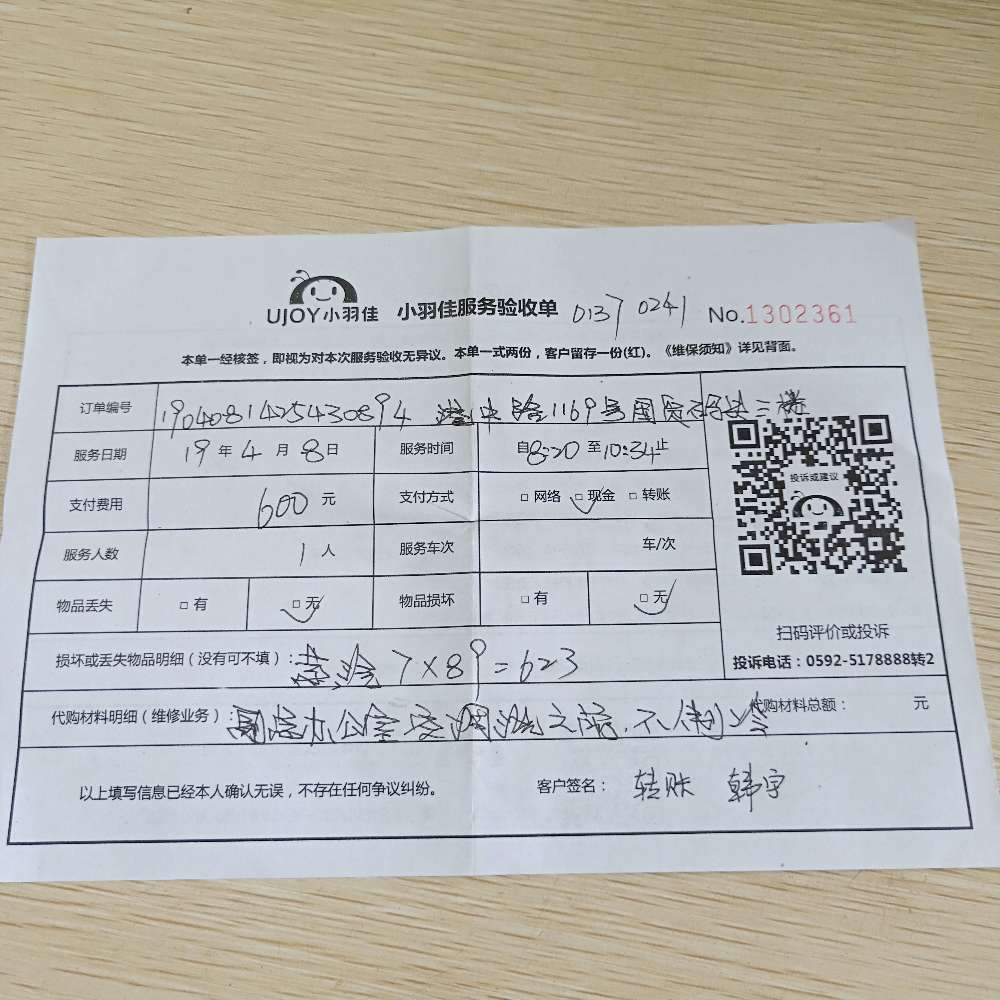 UJOY小羽佳 小羽佳服务验收单 0137 0241 No.1302361
本单一经核签，即视为对本次服务验收无异议。本单一式两份，客户留存一份(红)。《维保须知》详见背面。
订单编号 1904081425430894 中路1169号国贸 三楼
服务日期 19年4月8日 服务时间 自8:20至10:34止
支付费用 600元 支付方式 □网络 □现金 □转账
投诉或建议
服务人数 1人 服务车次 车/次
物品丢失 □有 □无 物品损坏 □有 □无
扫码评价或投诉
损坏或丢失物品明细（没有可不填）： 7×89=623
投诉电话：0592-5178888转2
代购材料明细（维修业务）： 办公室空调 代购材料总额： 元
以上填写信息已经本人确认无误，不存在任何争议纠纷。 客户签名： 转账 韩宇